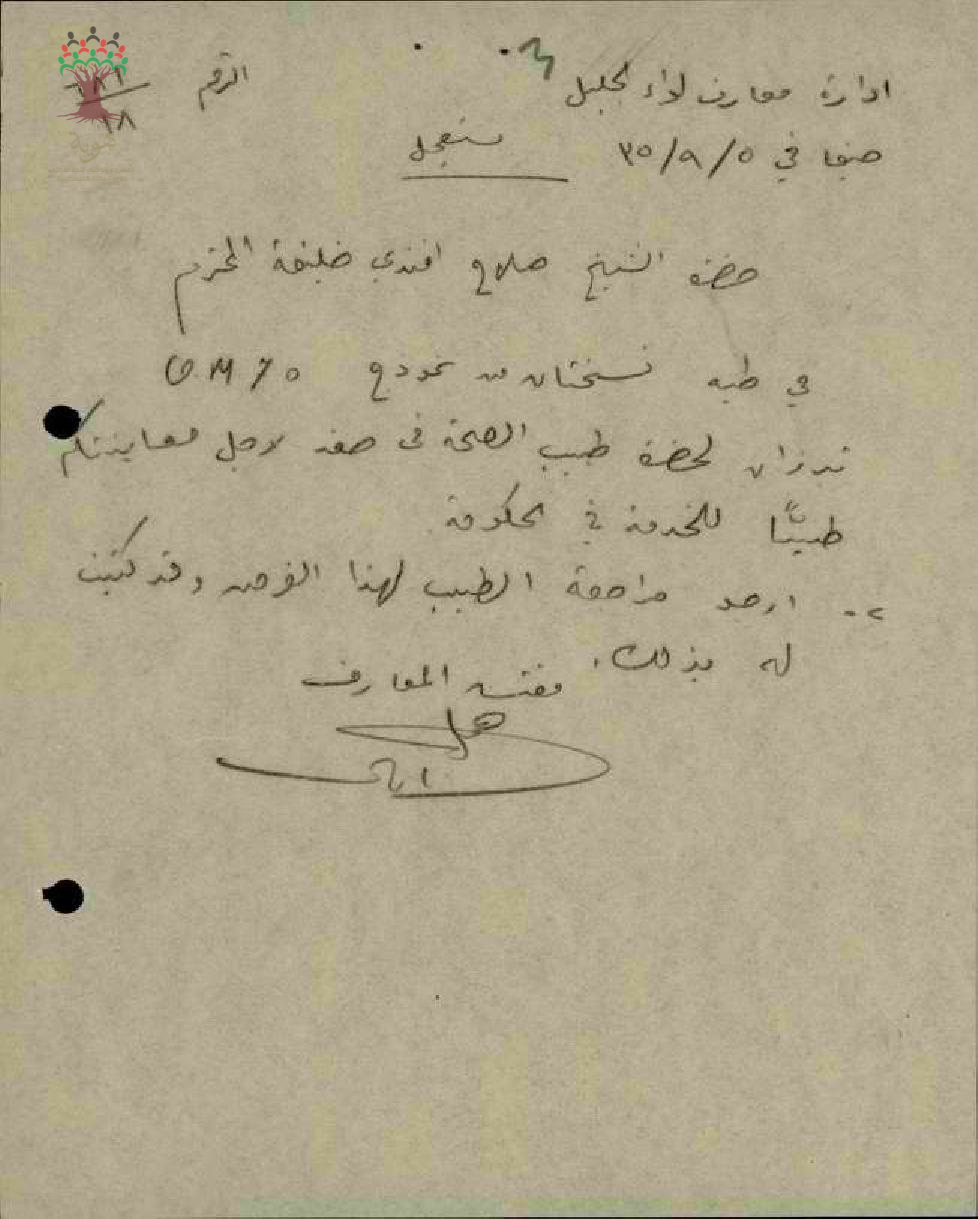 ادارة معارف لواء الجليل الرقم
حيفا في ٥/٩/٣٥ مستعجل
١٨
حضرة الشيخ صلاح افندي خليفة المحترم
في طيه نسختان من نموذج
لحضرة طبيب الصحة في صفد لاجل معاينتكم
طبيًا للخدمة في الحكومة
٢- ارجو مراجعة الطبيب لهذا الغرض وقد كتبت
له بذلك.
مفتش المعارف